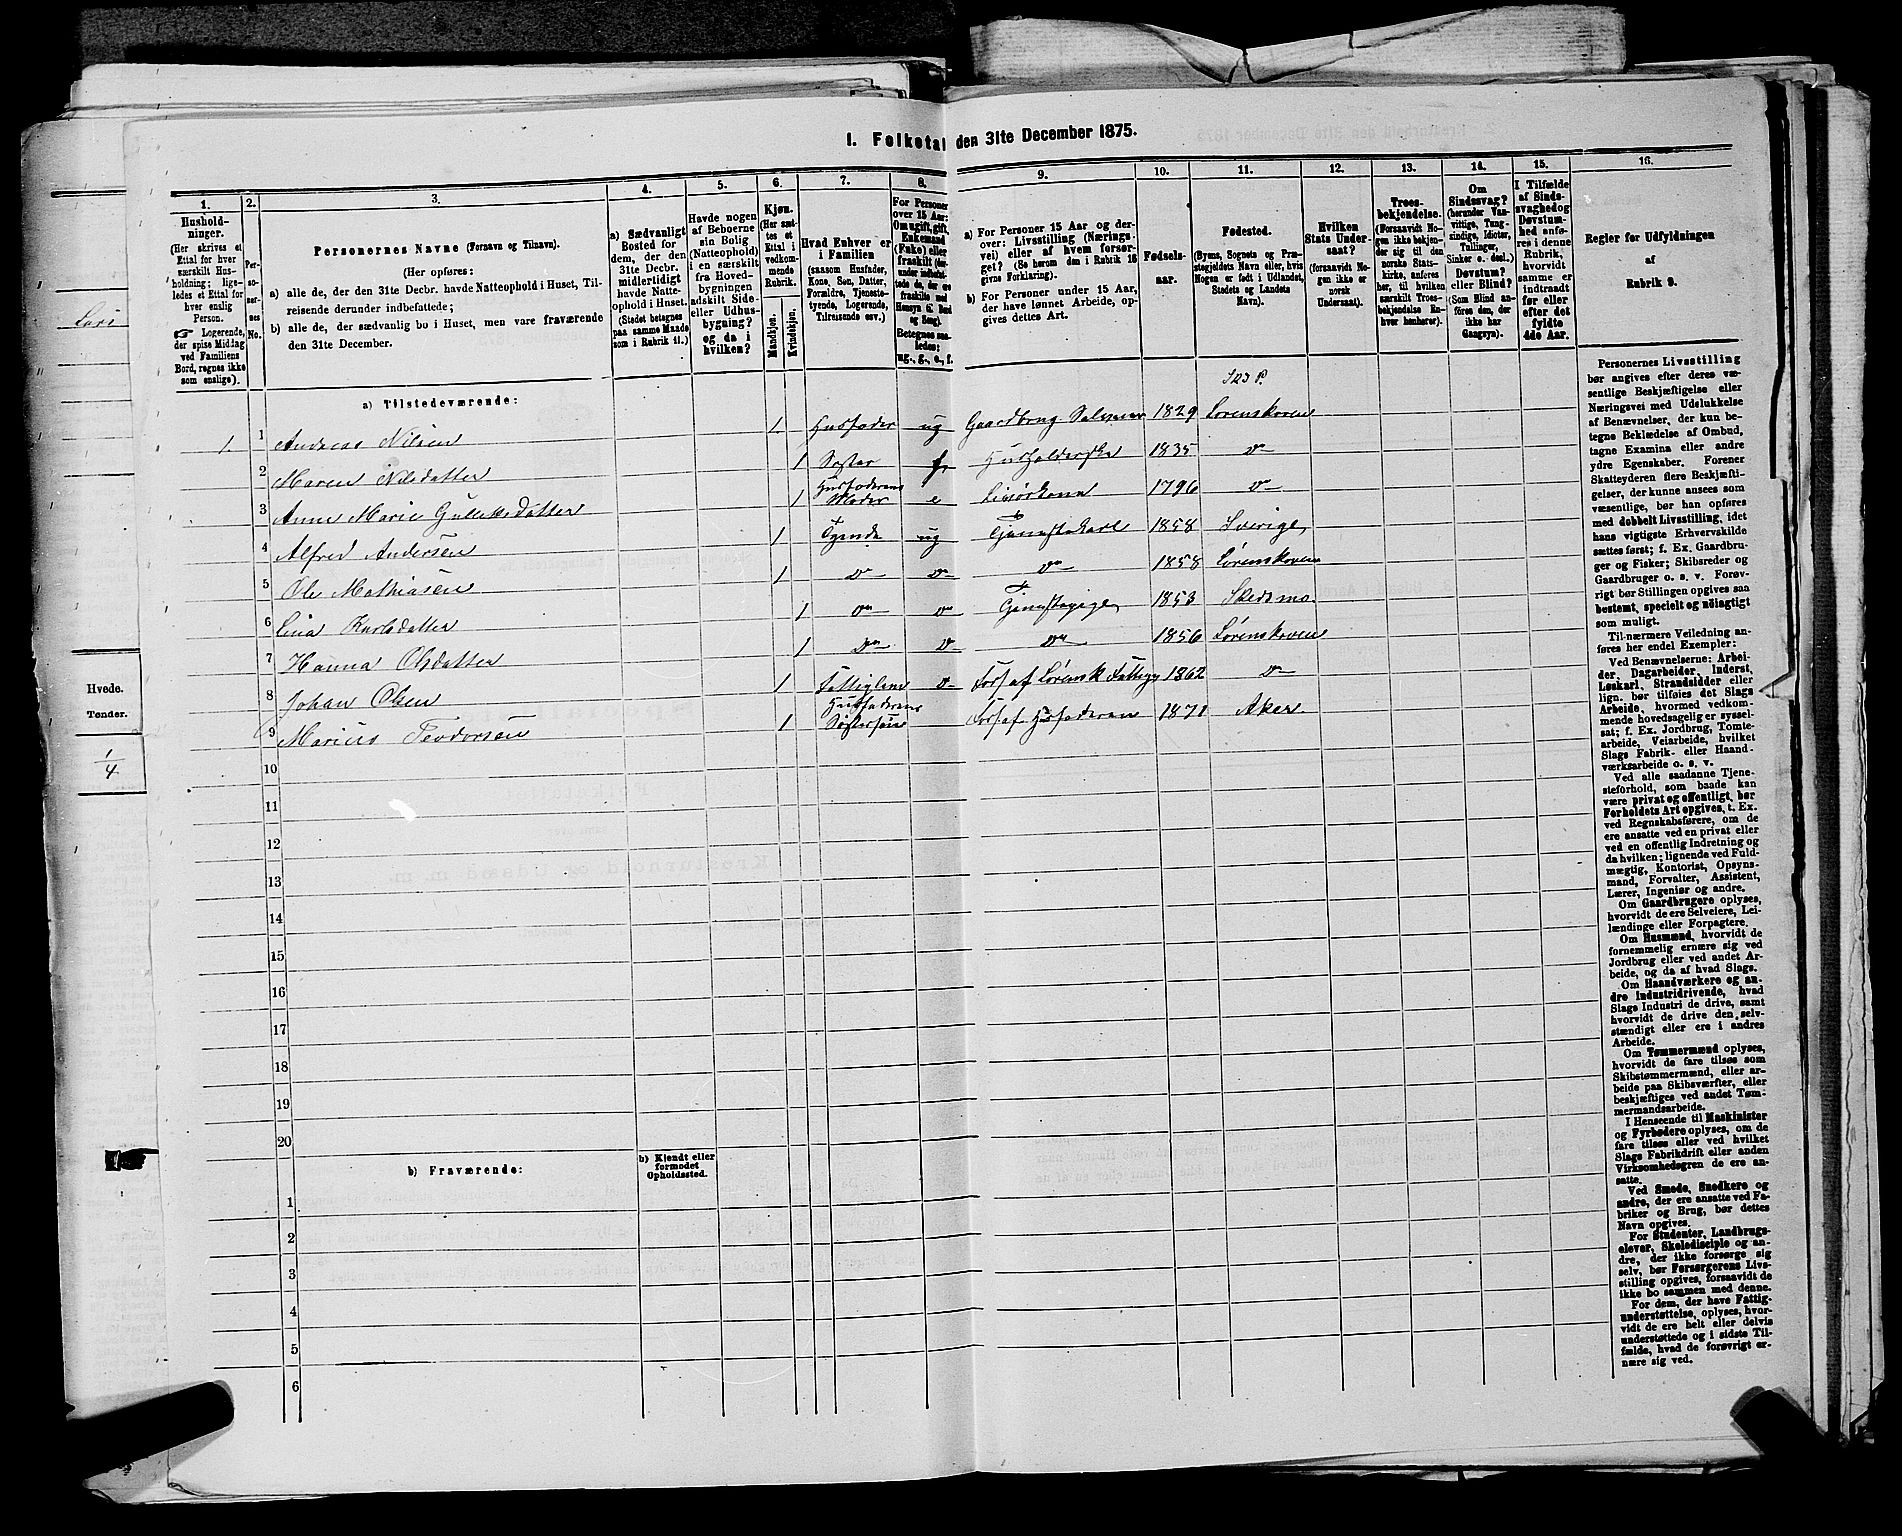 I. Folketal den 31te December 1875.
1.
Hushold-
ninger.
(Her skrives et
Ettal for hver
særskilt Hus-
holdning; lige-
ledes et Ettal for
hver enslig
Person.
☞ Logerende,
der spise Middag
ved Familiens
Bord, regnes ikke
som enslige).
2.
Per-
so-
ner-
nes
No.
3.
Personernes Navne (Fornavn og Tilnavn).
(Her opføres:
a) alle de, der den 31te Decbr. havde Natteophold i Huset, Til-
reisende derunder indbefattede;
b) alle de, der sædvanlig bo i Huset, men vare fraværende
den 31te December.
4.
a) Sædvanligt
Bosted for
dem, der den
31te Decbr.
midlertidigt
havde Natte-
ophold i Huset.
(Stedet betegnes
paa samme Maade
som i Rubrik 11.)
5.
Havde nogen
af Beboerne
sin Bolig
(Natteophold)
i en særskilt
fra Hoved-
bygningen
adskilt Side-
eller Udhus-
bygning?
og da i
hvilken?
6.
Kjøn.
(Her sæt-
tes et
Ettal i
vedkom-
mende
Rubrik.
Mandkjøn.
Kvindekjøn.
7.
Hvad Enhver er
i Familien
(saasom Husfader,
Kone, Søn, Datter,
Forældre, Tjeneste-
tyende, Logerende,
Tilreisende osv.)
8.
For Personer
over 15 Aar:
Om ugift, gift,
Enkemand
(Enke) eller
fraskilt
Betegnes saa-
ledes:
ug., g., e., f.
9.
a) For Personer 15 Aar og der-
over: Livsstilling (Nærings-
vei) eller af hvem forsør-
get? (Se herom den i Rubrik 16
givne Forklaring).
b) For Personer under 15 Aar,
der have lønnet Arbeide, op-
gives dettes Art.
10.
Fødsels-
aar.
11.
Fødested.
(Byens, Sognets og Præ-
stegjeldets Navn eller, hvis
Nogen er født i Udlandet,
Stedets og Landets
Navn).
12.
Hvilken
Stats Under-
saat?
(forsaavidt No-
gen ikke er
norsk
Undersaat).
13.
Troes-
bekjendelse.
(Forsaavidt No-
gen ikke bekjen-
der sig til den
norske Stats-
kirke, anføres
her, til hvilken
særskilt Troes-
bekjendelse En-
hver henhører).
14.
Om
Sindssvag?
(herunder Van-
vittige, Tung-
sindige, Idioter,
Tullinger,
Sinker o. desl.)
Døvstum?
eller Blind?
(Som Blind an-
føres den, der
ikke har
Gangsyn).
15.
I Tilfælde
af Sinds-
svaghed og
Døvstum-
hed anfø-
res i denne
Rubrik,
hvorvidt
samme er
indtraadt
før eller
efter det
fyldte
4de Aar.
16.
Regler for Udfyldningen
af
Rubrik 9.
a) Tilstedeværende:
1. 1 Andreas Nilsen 1. Husfader ug Gaardbrug Selveier 1829 Lørenskoven
2 Maren Nilsdatter 1 Søster Husholderske 1835 do
3 Anne Marie 1 Husfaderens Moder e 1796 do
4 Alfred Andersen 1 Tyende ug Tjenestekarl 1858 Sverige
5 Ole Mathiasen 1 do do do 1858 Lørenskoven
6 Lina Karlsdatter 1 do do Tjenestepige 1853 Skedsmo
7 Hanna Olsdatter 1 do do do 1856 Lørenskoven
8 Johan Olsen 1 do Fors af Lørensk 1862 do
9 Marius Teodorsen 1 Husfaderens Søstersøn Fors af Husfaderen 1871 Aker
10
11
12
13
14
15
16
17
18
19
20
b) Fraværende:
b) Kjendt eller
formodet
Opholdssted.
1
2
3
4
5
6
Personernes Livsstilling
bør angives efter deres væ-
sentlige Beskjæftigelse eller
Næringsvei med Udelukkelse
af Benævnelser, der kun be-
tegne Beklædelse af Ombud,
tagne Examina eller andre
ydre Egenskaber. Forener
Skatteyderen flere Beskjæfti-
gelser, der kunne ansees som
væsentlige, bør han opføres
med dobbelt Livsstilling, idet
hans vigtigste Erhvervskilde
sættes først; f. Ex. Gaardbru-
ger og Fisker; Skibsreder og
Gaardbruger o. s. v. Forøv-
rigt bør Stillingen opgives saa
bestemt, specielt og nøiagtigt
som muligt.
Til nærmere Veiledning an-
føres her endel Exempler:
Ved Benævnelserne: Arbei-
der, Dagarbeider, Inderst,
Løskarl, Strandsidder eller
lign. bør tilføies det Slags
Arbeide, hvormed vedkom-
mende hovedsagelig er syssel-
sat; f. Ex. Jordbrug, Tomte-
arbeide, Veiarbeide, hvilket
Slags Fabrik- eller Haand-
værksarbeide o. s. v.
Ved alle saadanne Tjene-
steforhold, som baade kan
være privat og offentligt, bør
Forholdets Art opgives, t. Ex.
ved Regnskabsførere, om de
ere ansatte ved en privat eller
ved en offentlig Indretning og
da hvilken; lignende ved Fuld-
mægtig, Kontorist, Opsyns-
mand, Forvalter, Assistent,
Lærer, Ingeniør og andre.
Om Gaardbrugere oplyses,
hvorvidt de ere Selveiere, Lei-
lændinge eller Forpagtere.
Om Husmænd, hvorvidt de
fornemmelig ernære sig ved
Jordbrug eller ved andet Ar-
beide, og da af hvad Slags.
Om Haandværkere og an-
dre Industridrivende, hvad
Slags Industri de drive, samt
hvorvidt de drive den selv-
stændigt eller ere i andres
Arbeide.
Om Tømmermænd oplyses,
hvorvidt de fare tilsøs som
Skibstømmermænd, eller ar-
beide paa Skibsværfter, eller
beskjæftiges ved andet Tøm-
mermandsarbeide.
I Henseende til Maskinister
og Fyrbødere oplyses, om de
fare tilsøs eller ved hvilket
Slags Fabrikdrift eller anden
Virksomhedsgren de ere an-
satte.
Ved Smede, Snedkere og
andre, der ere ansatte ved Fa-
briker og Brug, bør dettes
Navn opgives.
For Studenter, Landbrugs-
elever, Skoledisciple og an-
dre, der ikke forsørge sig
selv, bør Forsørgerens Livs-
stilling opgives, forsaavidt de
ikke bo sammen med denne.
For dem, der have Fattig-
understøttelse, oplyses, hvor-
vidt de ere helt eller delvis
understøttede og i sidste Til-
fælde, hvad de forøvrigt er-
nære sig ved.
Hvede.
Tønder.
1/4